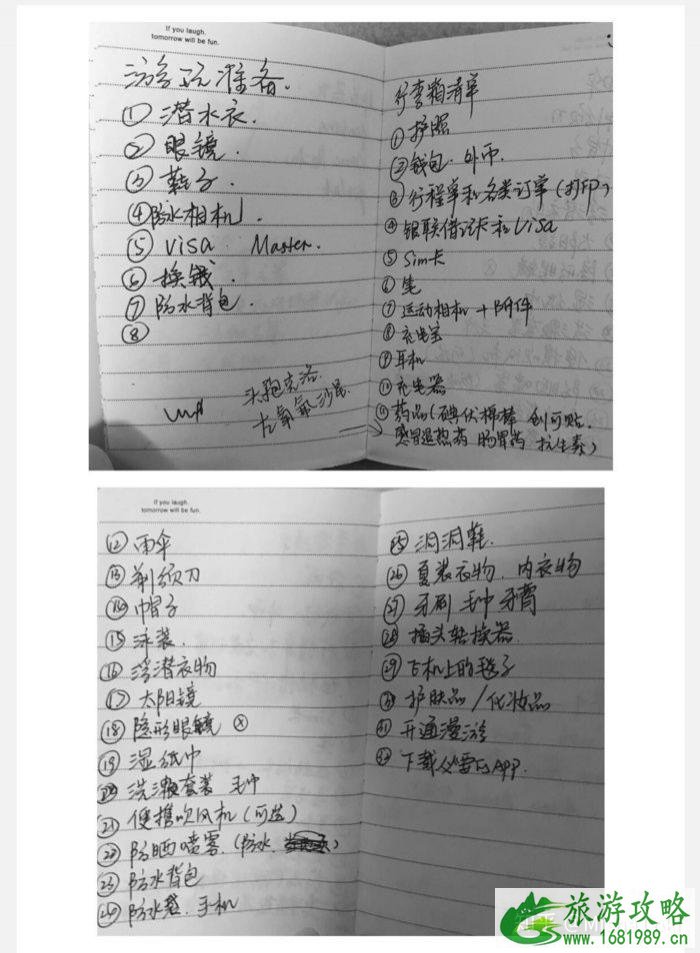 If you laugh,
tomorrow will be fun.
游玩准备.
① 潜水衣.
② 眼镜.
③ 鞋子.
④ 防水相机.
⑤ visa. Master.
⑥ 换钱.
⑦ 防水背包.
⑧
头孢克洛.
左氧氟沙星.
行李箱清单
① 护照
② 钱包. 外币.
③ 行程单和各类订单(打印)
④ 银联借记卡和visa
⑤ Sim卡
⑥ 笔
⑦ 运动相机 + 附件
⑧ 充电宝
⑨ 耳机
⑩ 充电器
⑪ 药品(碘伏棉棒 创可贴.
感冒退热药 肠胃药 抗生素)
If you laugh,
tomorrow will be fun.
⑫ 雨伞
⑬ 剃须刀
⑭ 帽子
⑮ 泳装.
⑯ 浮潜衣物
⑰ 太阳镜
⑱ 隐形眼镜 ⓧ
⑲ 湿纸巾
⑳ 洗漱套装 毛巾
㉑ 便携吹风机(可选)
㉒ 防晒喷雾.(防水.)
㉓ 防水背包
㉔ 防水袋.手机
㉕ 洞洞鞋.
㉖ 夏装衣物. 内衣物
㉗ 牙刷 毛巾 牙膏
㉘ 插头转换器.
㉙ 飞机上的毯子
㉚ 护肤品/化妆品
㉛ 开通漫游
㉜ 下载必需的APP.
旅游攻略
www.1681989.cn